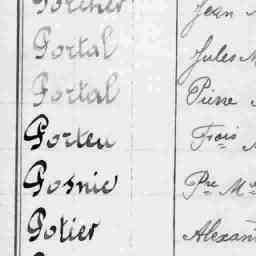 Porcher Jean
Portal Jules M
Portal Pierre
Porteu Frois
Posnic Pre M
Potier Alexan